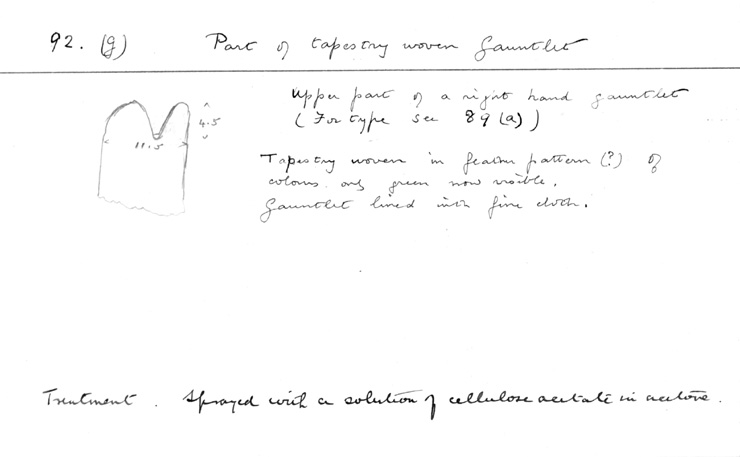 92. (g) Part of tapestry woven Gauntlet
4.5
11.5
Upper part of a right hand gauntlet
(For type see 89 (a))
Tapestry woven in feather pattern (?) of
colours. only green now visible.
Gauntlet lined with fine cloth.
Treatment. Sprayed with a solution of cellulose acetate in acetone.